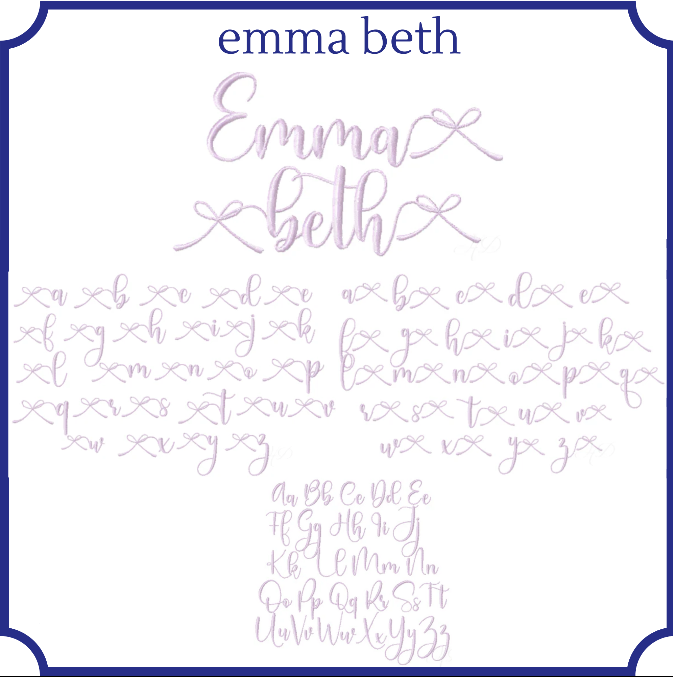 emma beth
Emma
beth
a b c d e a b c d e
f g h i j k f g h i j k
l m n o p l m n o p q
q r s t u v r s t u v
w x y z w x y z
Aa Bb Cc Dd Ee
Ff Gg Hh Ii Jj
Kk Ll Mm Nn
Oo Pp Qq Rr Ss Tt
Uu Vv Ww Xx Yy Zz